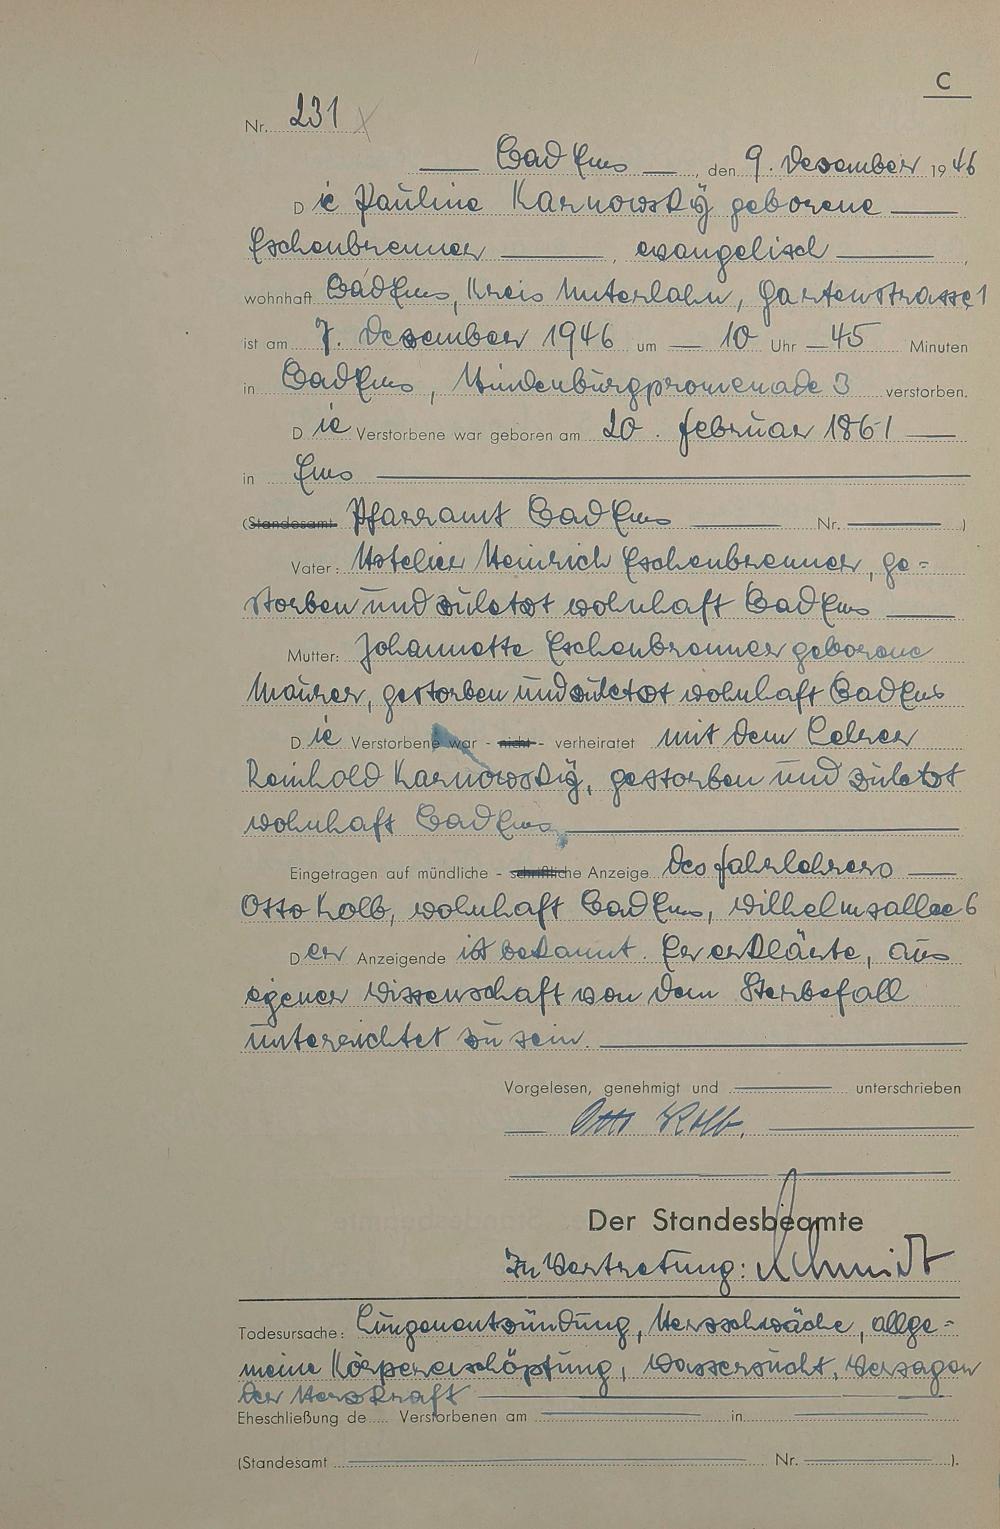 C
Nr. 231
Bad Ems, den 9. Dezember 1946
Die Pauline Karnowsky geborene
Eschenbrenner, evangelisch,
wohnhaft Bad Ems, Kreis Unterlahn, Gartenstrasse 1
ist am 7. Dezember 1946 um 10 Uhr 45 Minuten
in Bad Ems, Hindenburgpromenade 3 verstorben.
Die Verstorbene war geboren am 20. Februar 1861
in Ems
(Standesamt Pfarramt Bad Ems Nr. )
Vater: Hotelier Heinrich Eschenbrenner, ge=
storben und zuletzt wohnhaft Bad Ems
Mutter: Johannette Eschenbrenner geborene
Maurer, gestorben und zuletzt wohnhaft Bad Ems
Die Verstorbene war - nicht - verheiratet mit dem Lehrer
Reinhold Karnowsky, gestorben und zuletzt
wohnhaft Bad Ems
Eingetragen auf mündliche - schriftliche Anzeige des Fahrlehrers
Otto Kolb, wohnhaft Bad Ems, Wilhelmsallee 6
Der Anzeigende ist bekannt. Er erklärte, aus
eigener Wissenschaft von dem Sterbefall
unterrichtet zu sein.
Vorgelesen, genehmigt und unterschrieben
Otto Kolb.
Der Standesbeamte
In Vertretung: Schmidt
Todesursache: Lungenentzündung, Herzschwäche, allge=
meine Körpererschöpfung, Wassersucht, Versagen
der Herzkraft
Eheschließung de..... Verstorbenen am in
(Standesamt Nr. ).